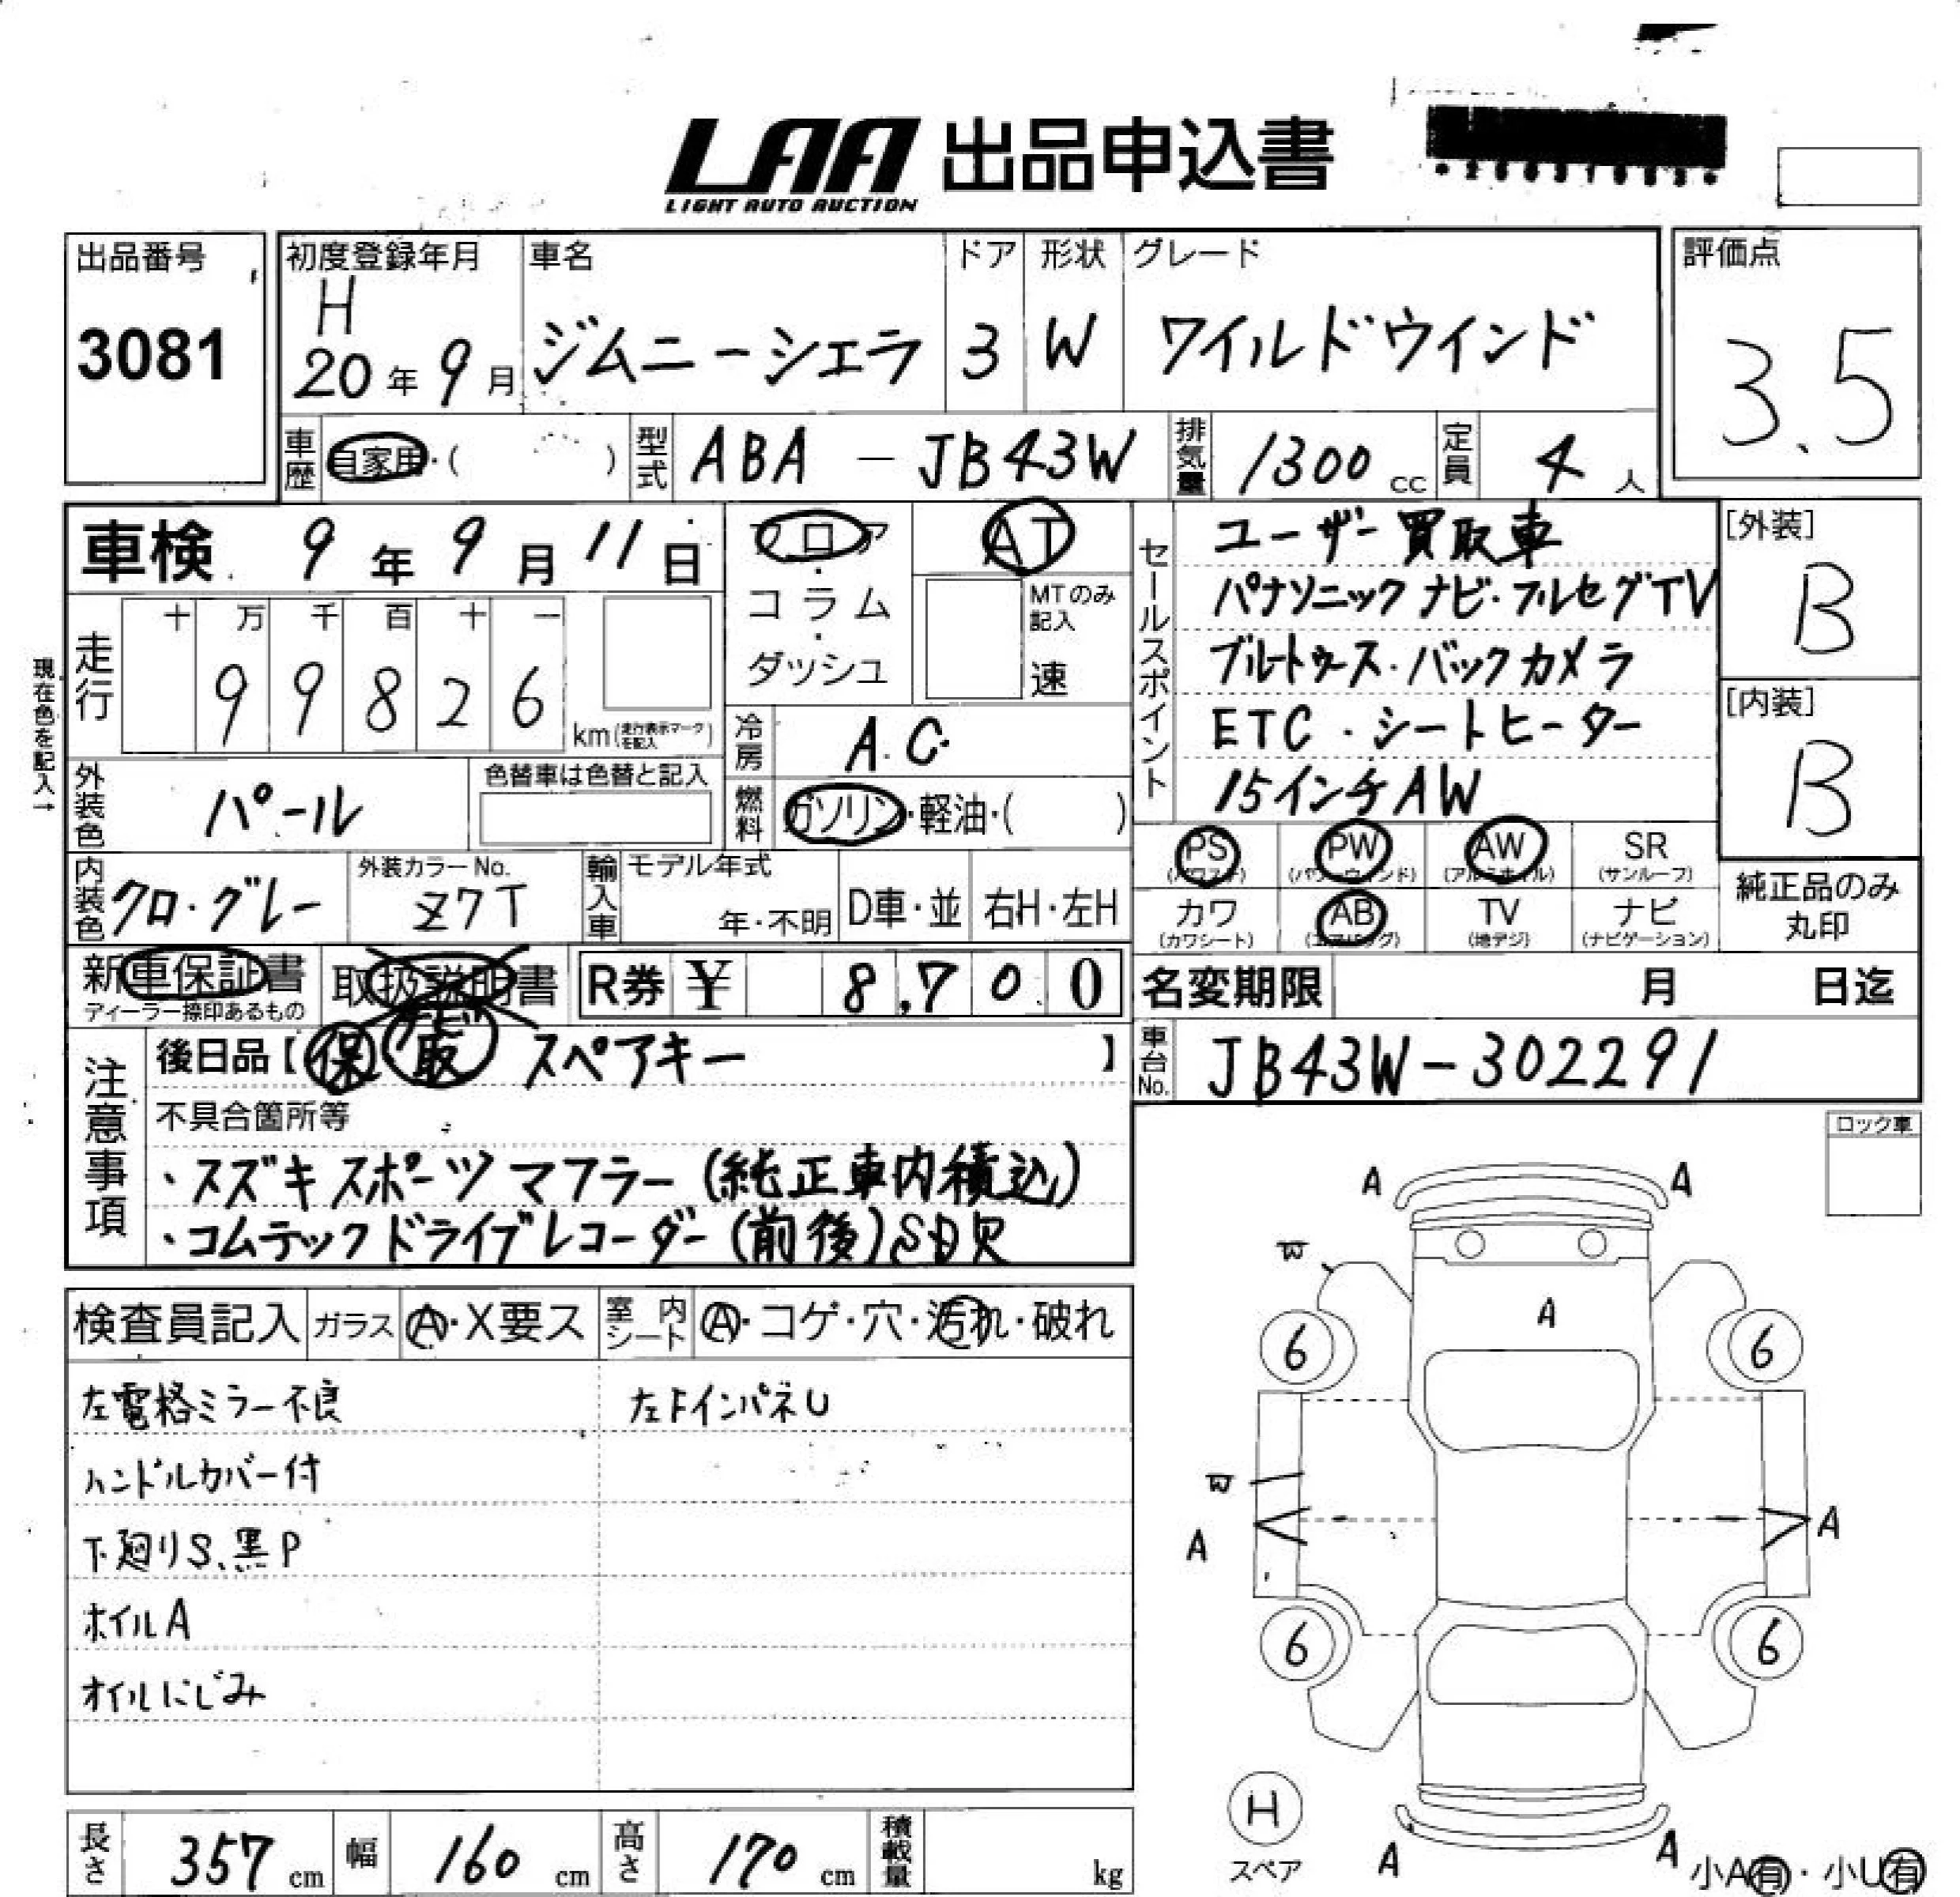 LAA 出品申込書
LIGHT AUTO AUCTION
出品番号
3081
初度登録年月
H
20年 9月
車名
ジムニーシエラ
ドア
3
形状
W
グレード
ワイルドウインド
評価点
3.5
車歴
自家用・( )
型式
ABA - JB43W
排気量
1300 cc
定員
4 人
車検 9年 9月 11日
フロア・コラム・ダッシュ
AT
MTのみ記入
速
現在色を記入→
走行
十 万 千 百 十 一
9 9 8 2 6
km(走行表示マークを記入)
冷房
A.C.
燃料
ガソリン・軽油・( )
外装色
パール
色替車は色替と記入
内装色
クロ・グレー
外装カラーNo.
Z7T
輸入車
モデル年式
年・不明
D車・並
右H・左H
セールスポイント
ユーザー買取車
パナソニックナビ・フルセグTV
ブルートゥース・バックカメラ
ETC・シートヒーター
15インチAW
[外装]
B
[内装]
B
PS (パワステ)
PW (パワーウィンド)
AW (アルミホイル)
SR (サンルーフ)
カワ (カワシート)
AB (エアバッグ)
TV (地デジ)
ナビ (ナビゲーション)
純正品のみ丸印
新車保証書
ディーラー捺印あるもの
取扱説明書
R券 ¥ 8,700
名変期限 月 日迄
注意事項
後日品【保 ナビ 取 スペアキー 】
車台No.
JB43W-302291
不具合箇所等
・スズキスポーツマフラー(純正車内積込)
・コムテックドライブレコーダー(前後)SD欠
ロック車
検査員記入
ガラス
A・X要ス
室内シート
A・コゲ・穴・汚れ・破れ
左電格ミラー不良
左FインパネU
ハンドルカバー付
下廻りS、黒P
ホイルA
オイルにじみ
A A
W
A
6 6
W
A A
6 6
H
スペア
A A
小A有・小U有
長さ 357 cm
幅 160 cm
高さ 170 cm
積載量 kg